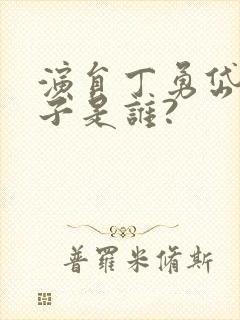 演員丁勇岱
子是誰?
普羅米脩斯